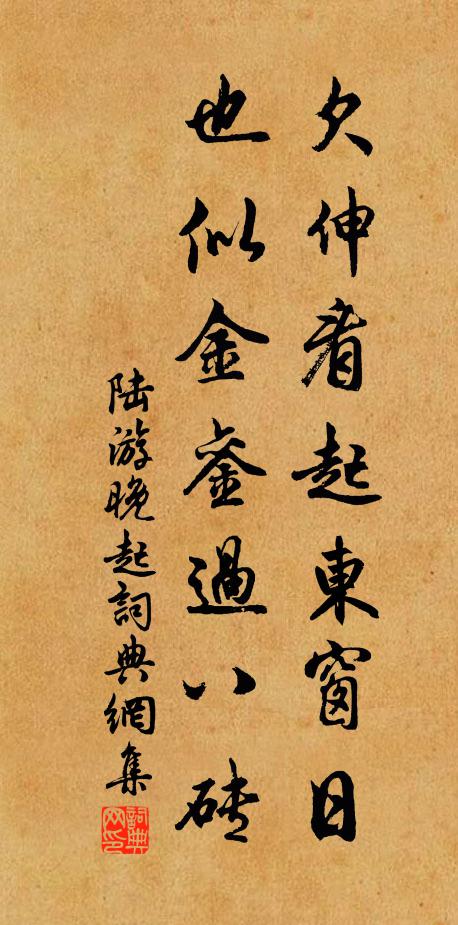 欠伸看起東窗日
也似金銮過八磚
陆游晚起詞典網集
詞典网印